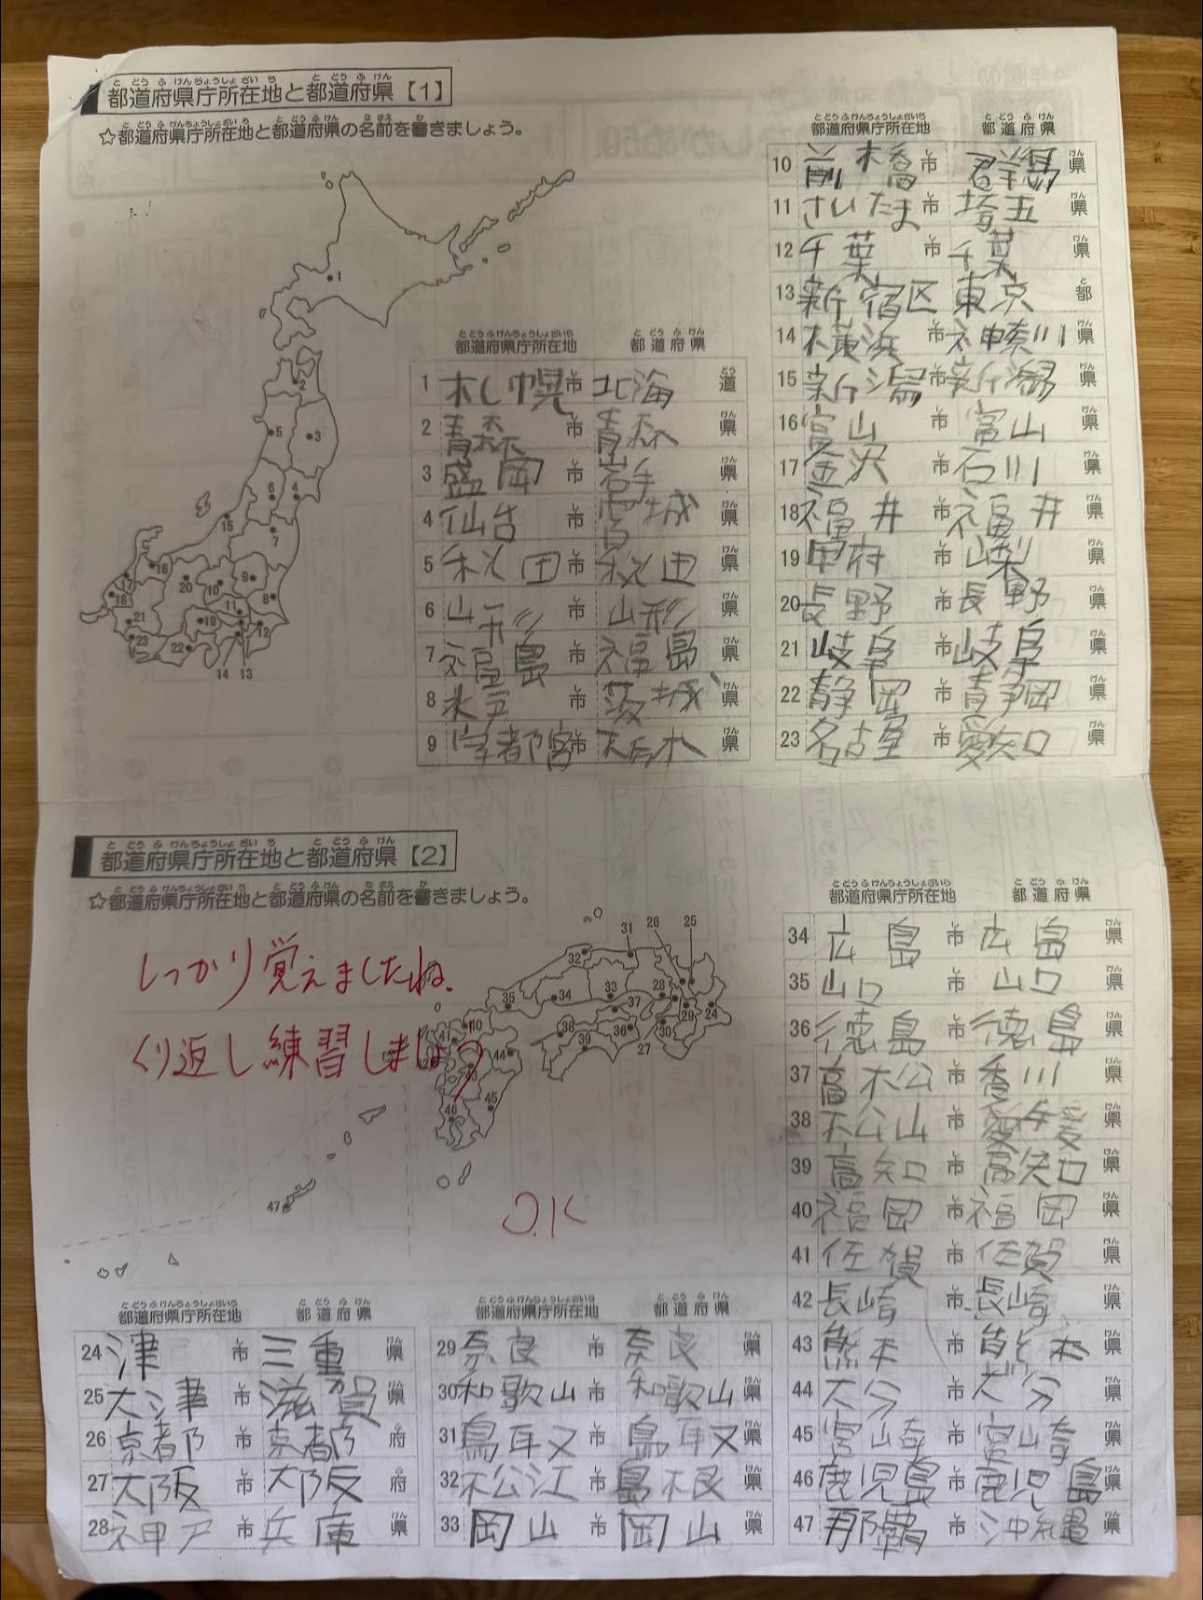 都道府県庁所在地と都道府県【1】
☆都道府県庁所在地と都道府県の名前を書きましょう。
都道府県庁所在地 都道府県
1 札幌市 北海道
2 青森市 青森県
3 盛岡市 岩手県
4 仙台市 宮城県
5 秋田市 秋田県
6 山形市 山形県
7 福島市 福島県
8 水戸市 茨城県
9 宇都宮市 栃木県
都道府県庁所在地 都道府県
10 前橋市 群馬県
11 さいたま市 埼玉県
12 千葉市 千葉県
13 新宿区 東京都
14 横浜市 神奈川県
15 新潟市 新潟県
16 富山市 富山県
17 金沢市 石川県
18 福井市 福井県
19 甲府市 山梨県
20 長野市 長野県
21 岐阜市 岐阜県
22 静岡市 静岡県
23 名古屋市 愛知県
都道府県庁所在地と都道府県【2】
☆都道府県庁所在地と都道府県の名前を書きましょう。
しっかり覚えましたね。
くり返し練習しましょう
O.K
都道府県庁所在地 都道府県
24 津市 三重県
25 大津市 滋賀県
26 京都市 京都府
27 大阪市 大阪府
28 神戸市 兵庫県
都道府県庁所在地 都道府県
29 奈良市 奈良県
30 和歌山市 和歌山県
31 鳥取市 鳥取県
32 松江市 島根県
33 岡山市 岡山県
都道府県庁所在地 都道府県
34 広島市 広島県
35 山口市 山口県
36 徳島市 徳島県
37 高松市 香川県
38 松山市 愛媛県
39 高知市 高知県
40 福岡市 福岡県
41 佐賀市 佐賀県
42 長崎市 長崎県
43 熊本市 熊本県
44 大分市 大分県
45 宮崎市 宮崎県
46 鹿児島市 鹿児島県
47 那覇市 沖縄県